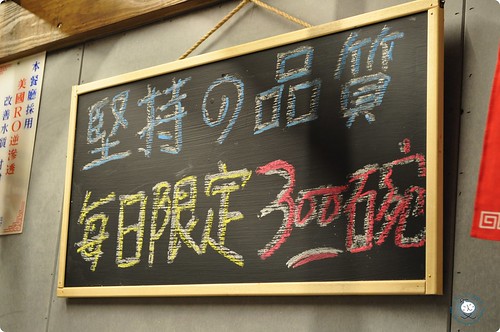 堅持の品質
每日限定300碗
本餐廳採用
美國RO逆滲透